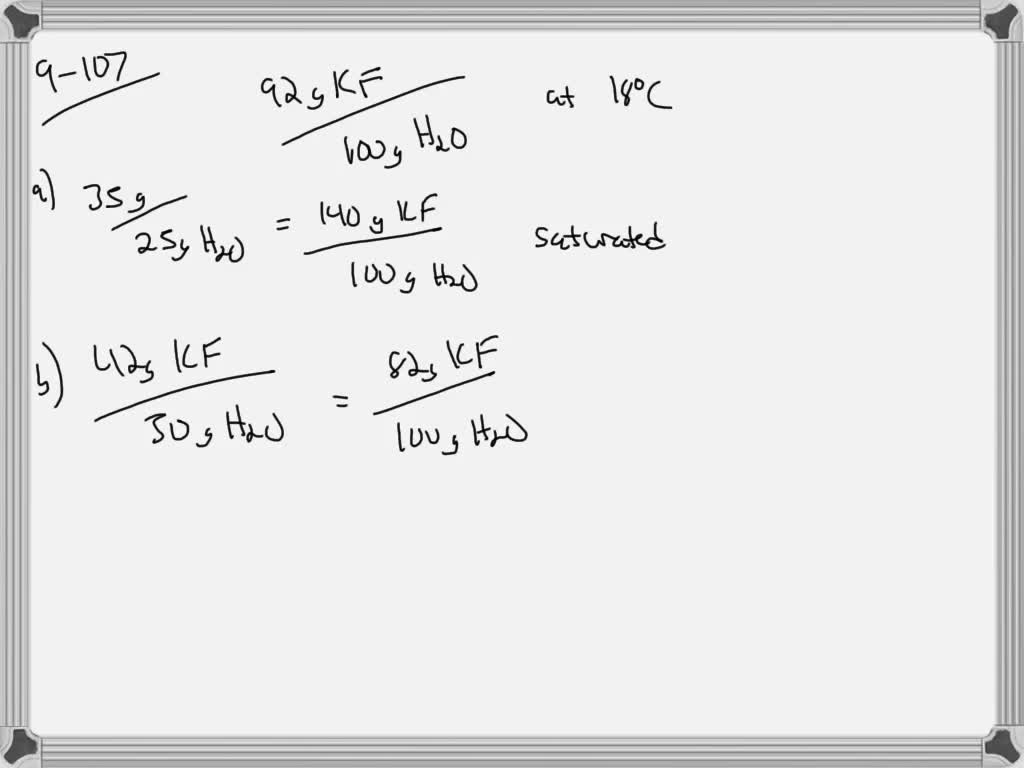 9-107
92g KF / 100g H2O at 18°C
a) 35g / 25g H2O = 140g KF / 100g H2O saturated
b) 42g KF / 50g H2O = 82g KF / 100g H2O